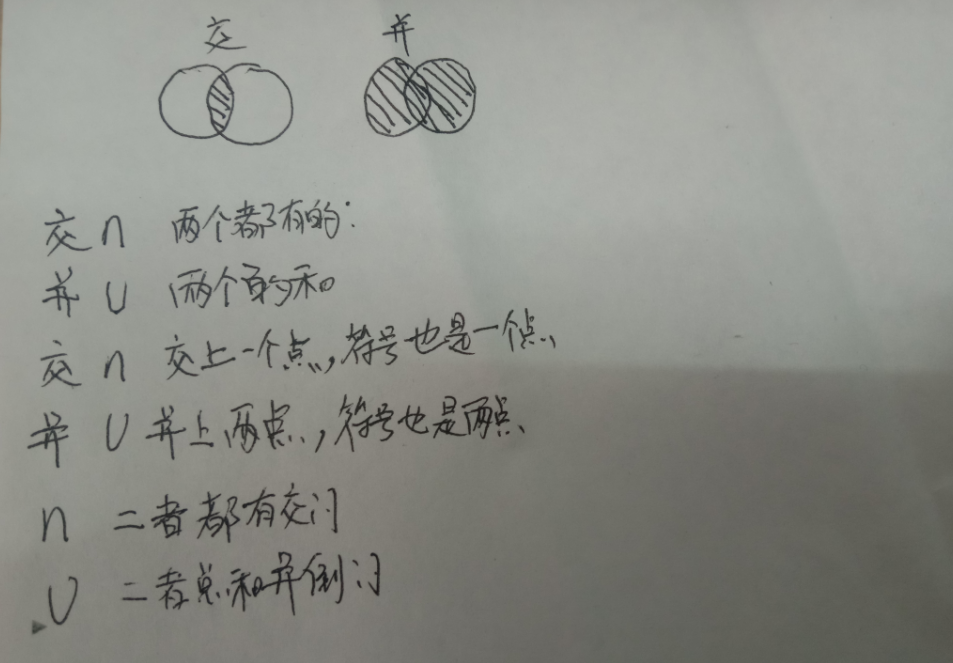 交 并
交 ∩ 两个都有的:
并 ∪ 两个的和
交 ∩ 交上一个点,符号也是一个点
并 ∪ 并上两点,符号也是两点
∩ 二者都有交门
∪ 二者总和并倒门